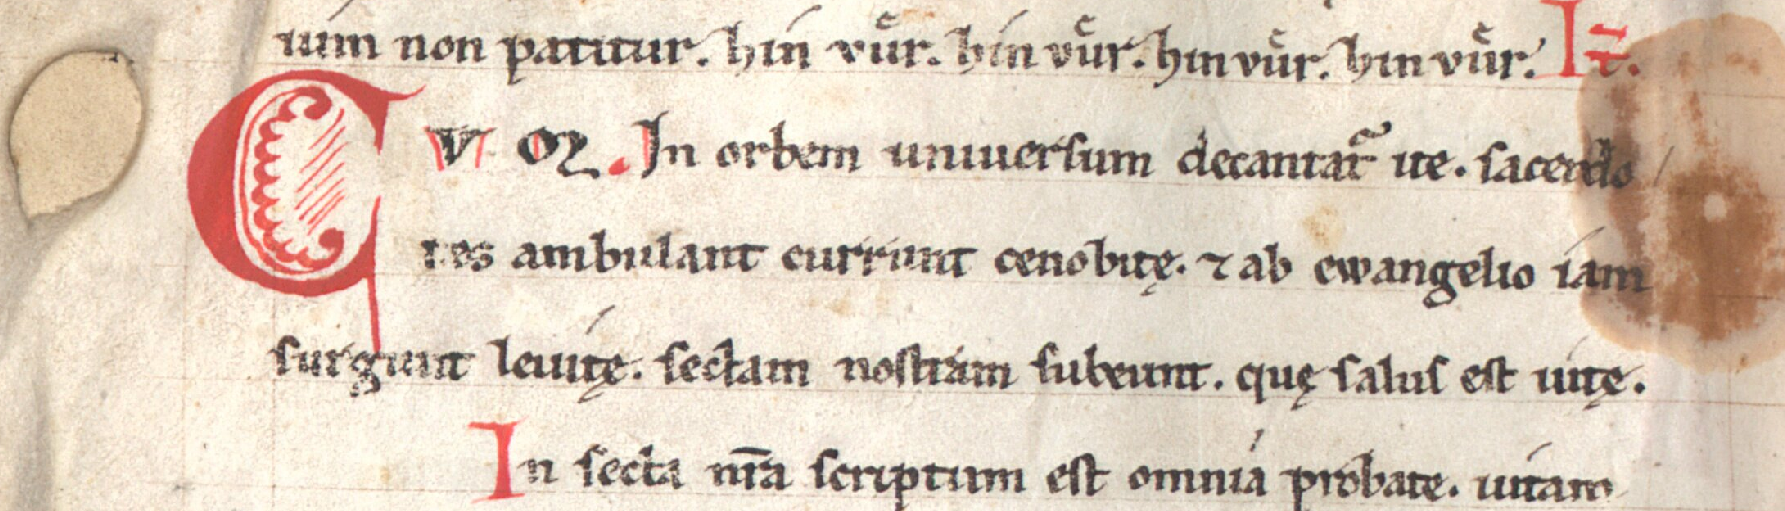 uım non patitur. hin vůr. hin vůr. hin vůr. hin vůr. It̅.
CVM. In orbem uniuersum decantat̃ ite. sacerdo
tes ambulant currunt cenobitę. ⁊ ab ewangelio iam
surgunt leuitę. sectam nostram subeunt. quę salus est uitę.
In secta nr̅a scriptum est omnia probate. uitam